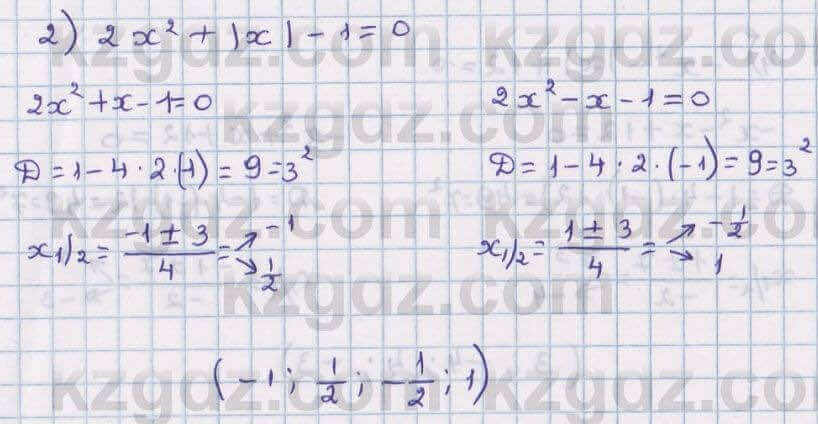 2) 2x² + |x| - 1 = 0
2x² + x - 1 = 0
D = 1 - 4 · 2 · (-1) = 9 = 3²
x₁/₂ = (-1 ± 3)/4 = ↗ -1 ↘ 1/2
2x² - x - 1 = 0
D = 1 - 4 · 2 · (-1) = 9 = 3²
x₁/₂ = (1 ± 3)/4 = ↗ -1/2 ↘ 1
(-1; 1/2; -1/2; 1)
kzgdz.com